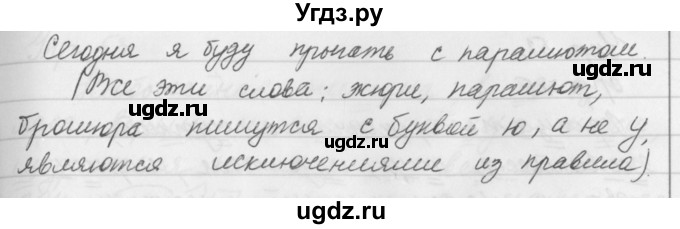 Угдз.ру
Сегодня я буду прыгать с парашютом.
(Все эти слова: жюри, парашют,
брошюра пишутся с буквой ю, а не у,
являются исключениями из правила).
ugdz.ru ugdz.ru ugdz.ru
ugdz.ru ugdz.ru
ugdz.ru ugdz.ru ugdz.ru